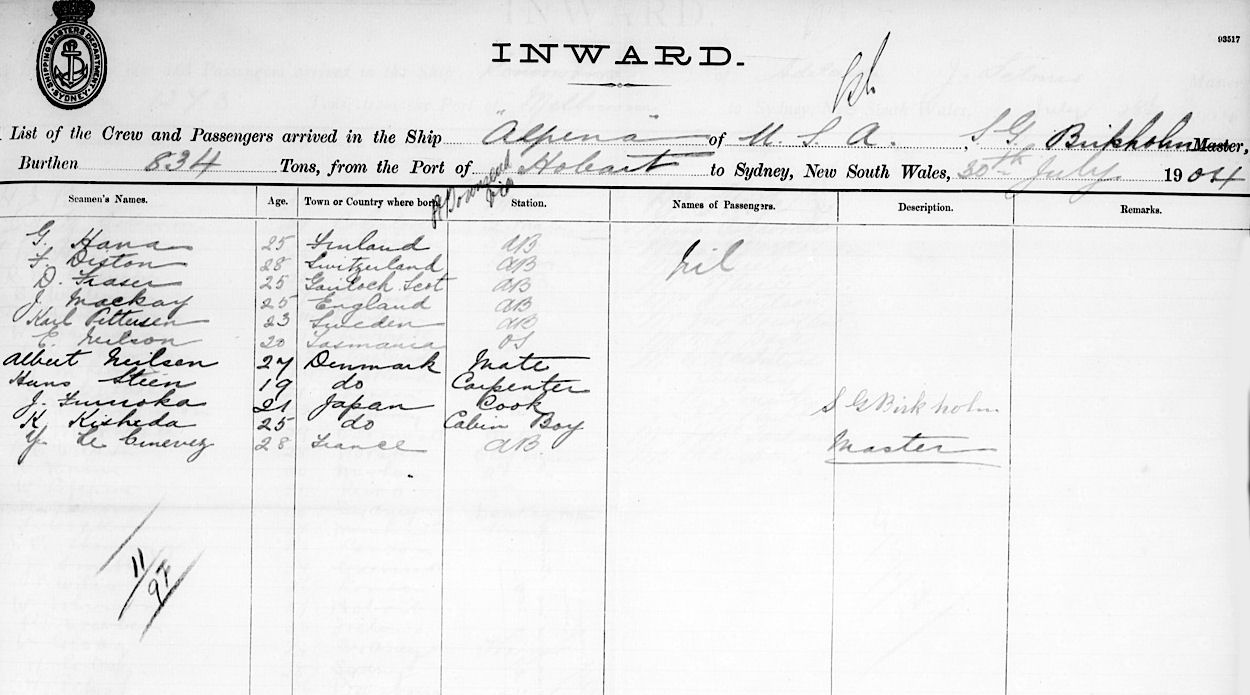 SHIPPING MASTERS DEPARTMENT SYDNEY
93517
INWARD.
List of the Crew and Passengers arrived in the Ship "Alpena" of U. S. A., S G Birkholm Master,
Burthen 834 Tons, from the Port of Hobart to Sydney, New South Wales, 30th July 1904
Pt Townsend
Seamen's Names. Age. Town or Country where born Station. Names of Passengers. Description. Remarks.
G. Hana 25 Finland AB
F. Diston 28 Switzerland AB nil
D. Fraser 25 Gairloch Scot AB
J. Mackay 25 England AB
Karl Pettersen 23 Sweden AB
E. Neilson 20 Tasmania OS
Albert Neilsen 27 Denmark Mate
Hans Steen 19 do Carpenter
J. Furuoka 21 Japan Cook S G Birkholm
K. Kisheda 25 do Cabin Boy
Y. Le 28 France AB Master
11/97